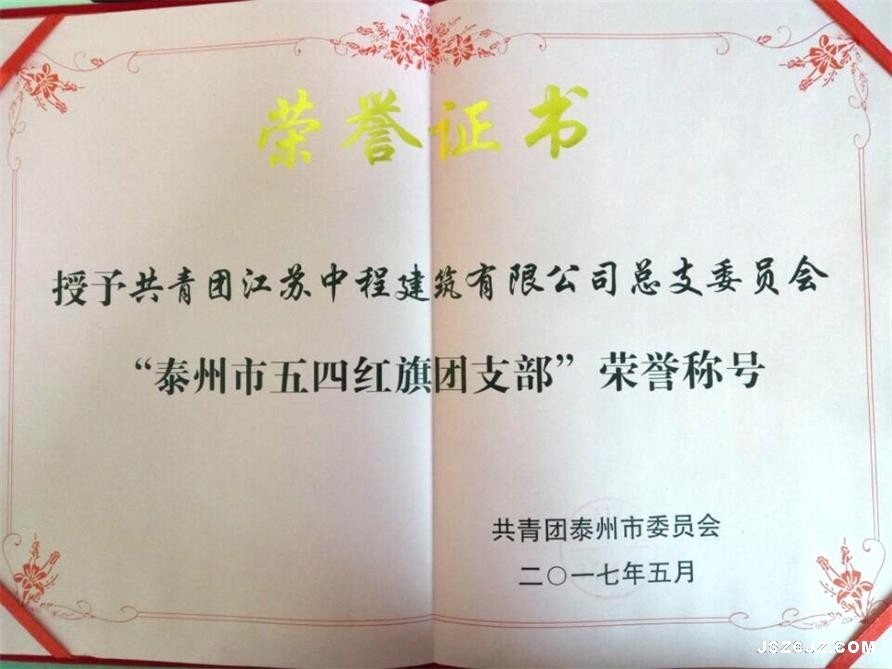 荣誉证书
授予共青团江苏中程建筑有限公司总支委员会
“泰州市五四红旗团支部”荣誉称号
共青团泰州市委员会
二〇一七年五月
JSZGJZ.COM